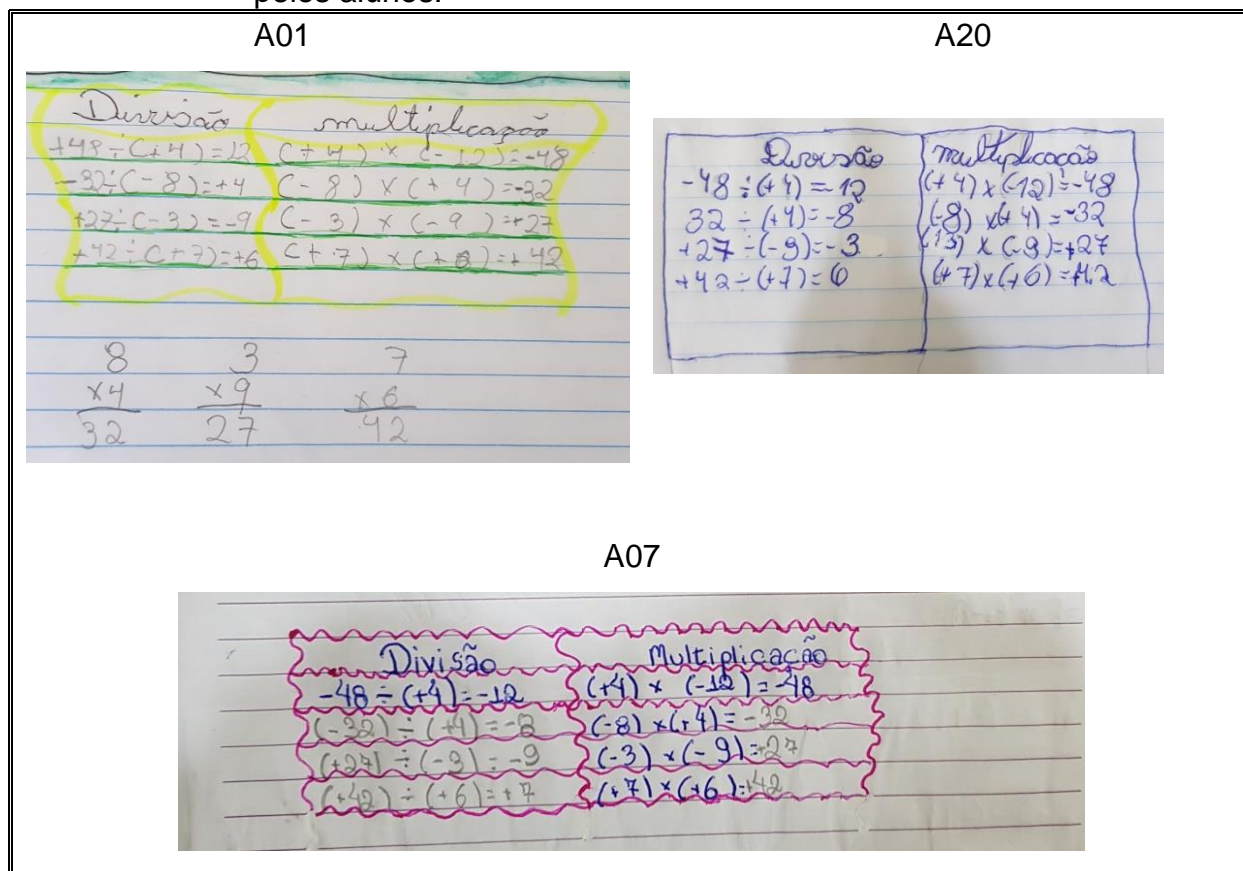 pelos alunos.
A01
A20
Divisão multiplicação
+48÷(+4)=12 (+4) x (-12)=-48
-32÷(-8)=+4 (-8) x (+4)=-32
+27÷(-3)=-9 (-3) x (-9)=+27
+42÷(+7)=+6 (+7) x (+6)=+42
8 3 7
x4 x9 x6
32 27 42
Divisão multiplicação
-48÷(+4)=-12 (+4)x(-12)=-48
32÷(+4)=-8 (-8)x(+4)=-32
+27÷(-9)=-3 x(-9)=+27
+42÷(+7)=6 (+7)x(+6)=+42
A07
Divisão Multiplicação
-48÷(+4)=-12 (+4) x (-12)=-48
(-32)÷(+4)=-8 (-8)x(+4)=-32
(+27)÷(-3)=-9 (-3)x(-9)=+27
(+42)÷(+6)=+7 (+7)x(+6)=+42